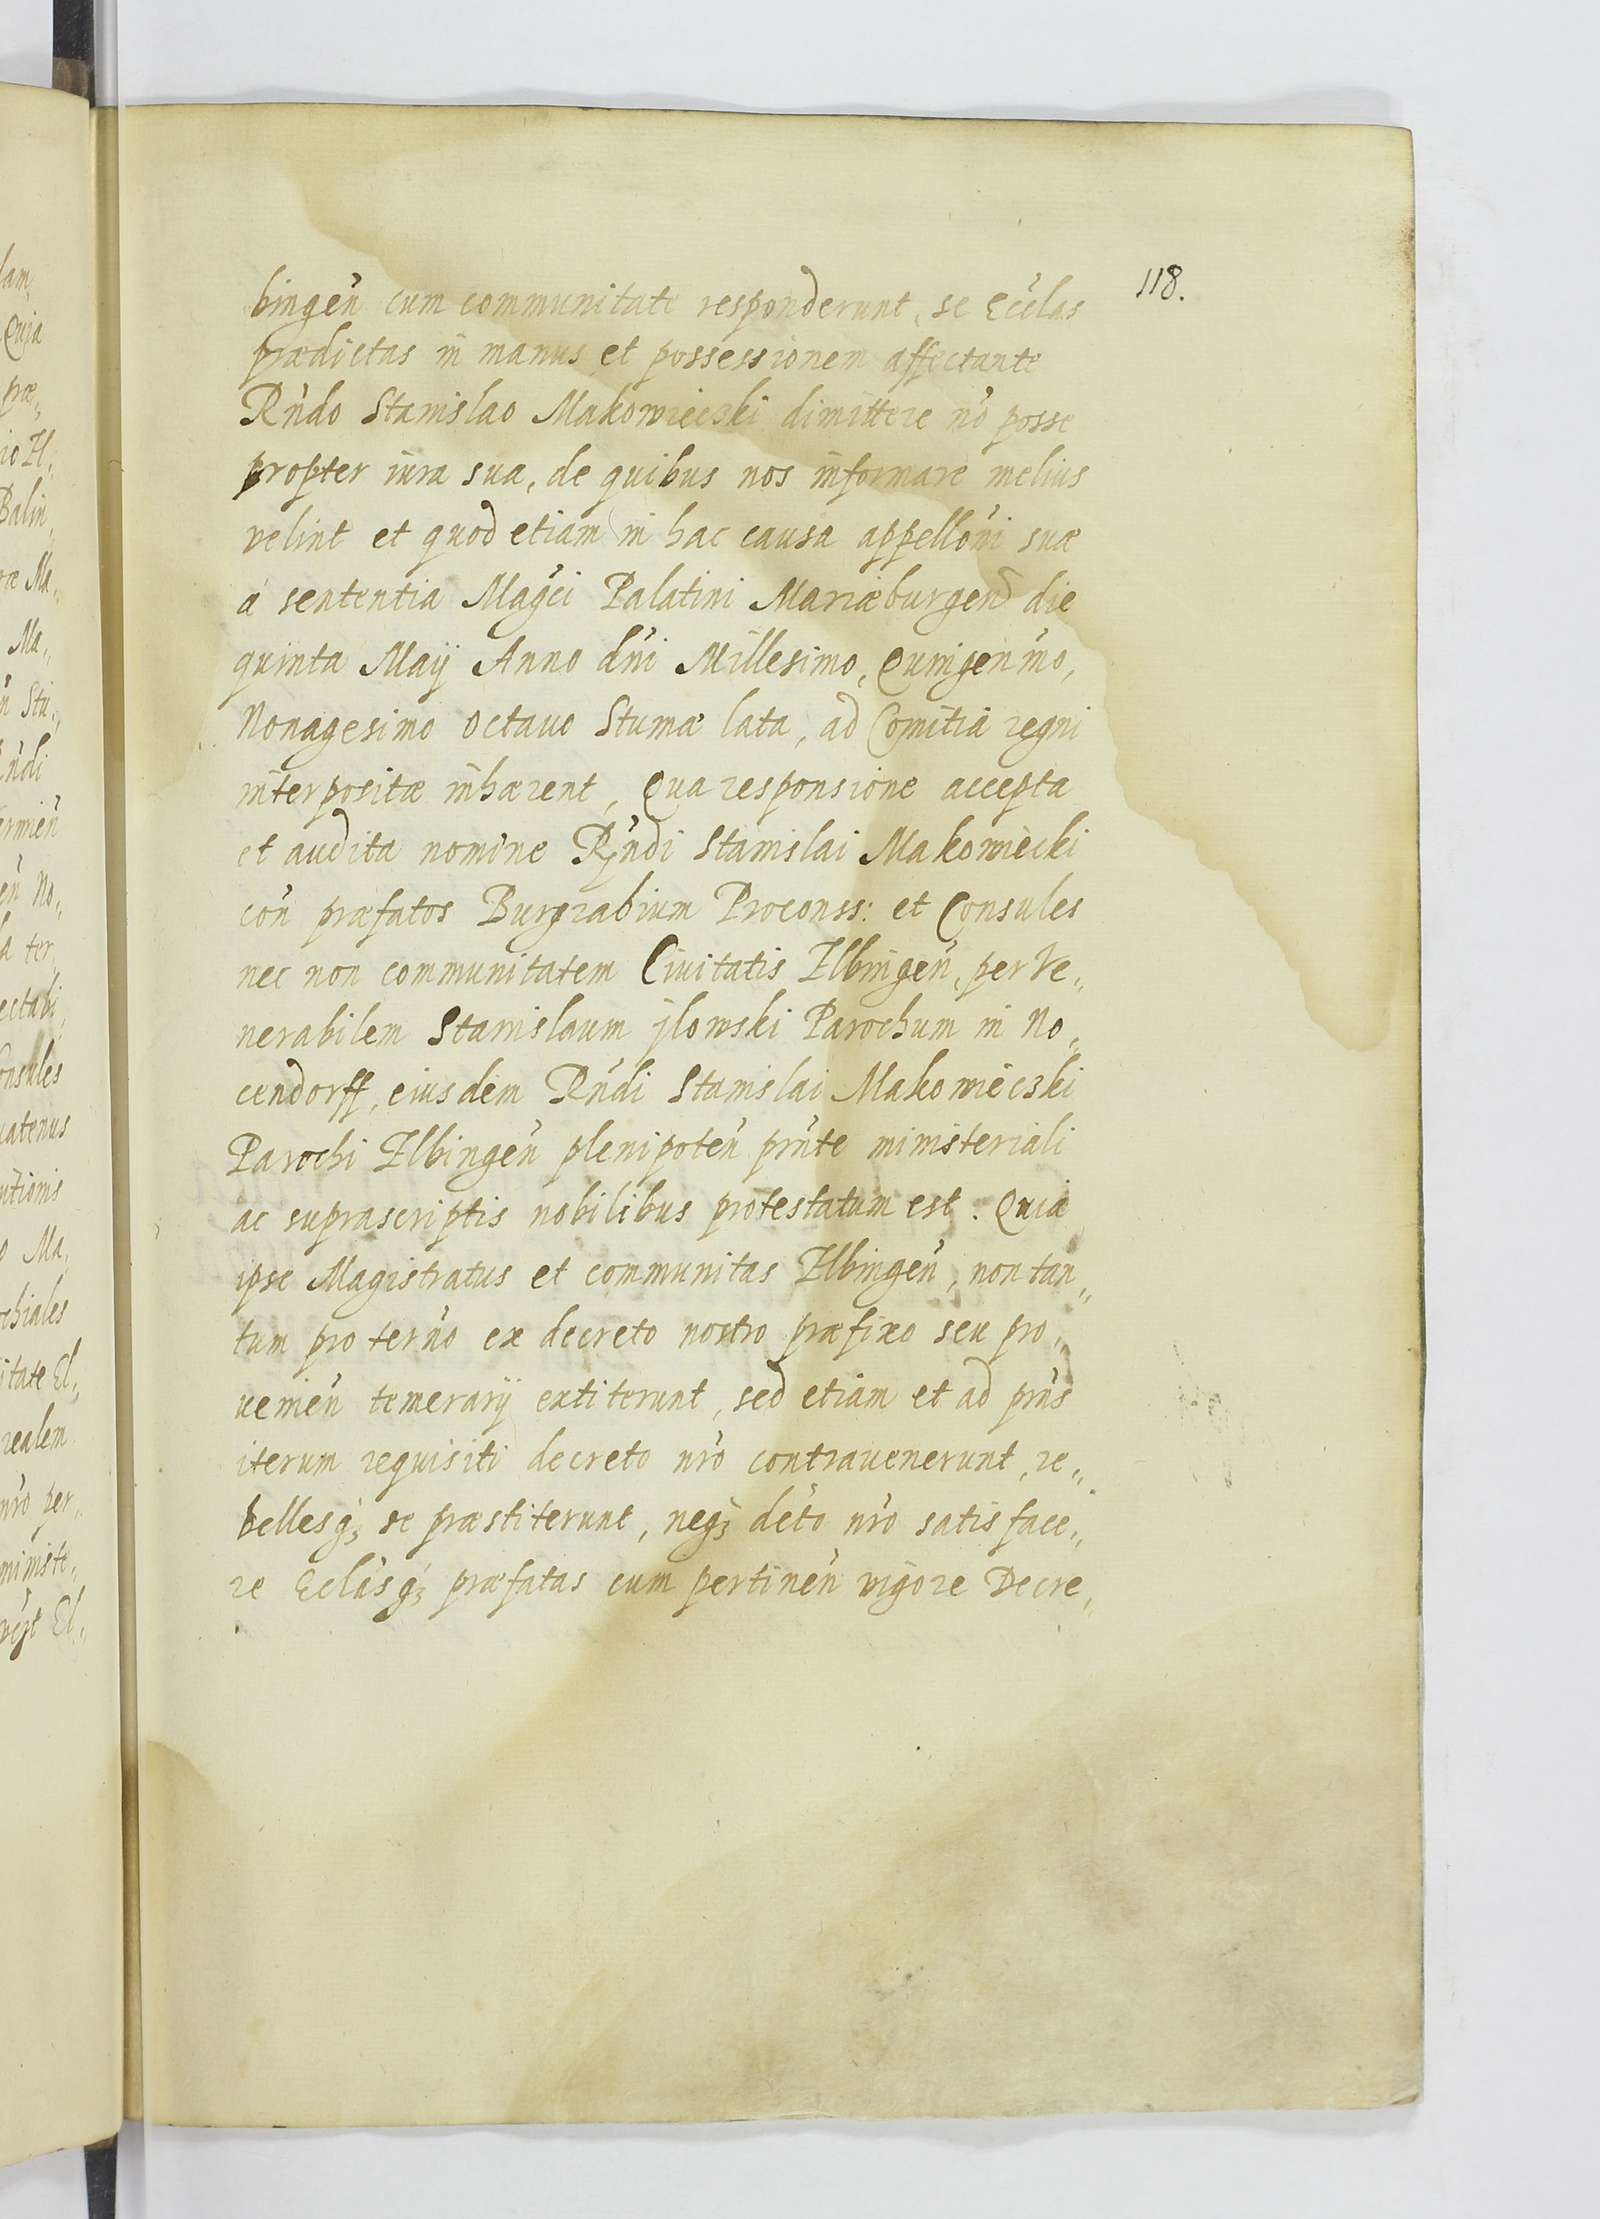 118.
bingen̄ cum communitate responderunt, se Eccl̄as
prædictas in manus et possessionem affectante
Rn̄do Stanislao Makowieczki dimittere nō posse
propter iura sua, de quibus nos informare melius
velint et quod etiam in hac causa appellōni suæ
a sententia Magc̄i Palatini Mariæburgen̄ die
quinta Maij Anno dn̄i Millesimo, Quingen̄mo,
Nonagesimo octavo Stumæ lata, ad Comitia regni
interpositæ inhærent, Qua responsione accepta
et audita nomine Rn̄di Stanislai Makowiecki
con̄ præfatos Burgrabium Proconss: et Consules
nec non communitatem Civitatis Elbingen̄, per Ve„
nerabilem Stanislaum jlowski Parochum in No„
cendorff, eiusdem Rn̄di Stanislai Makowieczki
Parochi Elbingen̄ plenipoten̄ prn̄te ministeriali
ac suprascriptis nobilibus protestatum est. Quia
ipse Magistratus et communitas Elbingen̄, non tan„
tum pro tern̄o ex decreto nostro præfixo seu pro„
uenien̄ temerarij extiterunt, sed etiam et ad prn̄s
iterum requisiti decreto nr̄o contrauenerunt, re„
bellesq3 se præstiterunt, neq3 dec̄to nr̄o satisface„
re Ecl̄asq3 præfatas cum pertinen̄ vigore Decre„